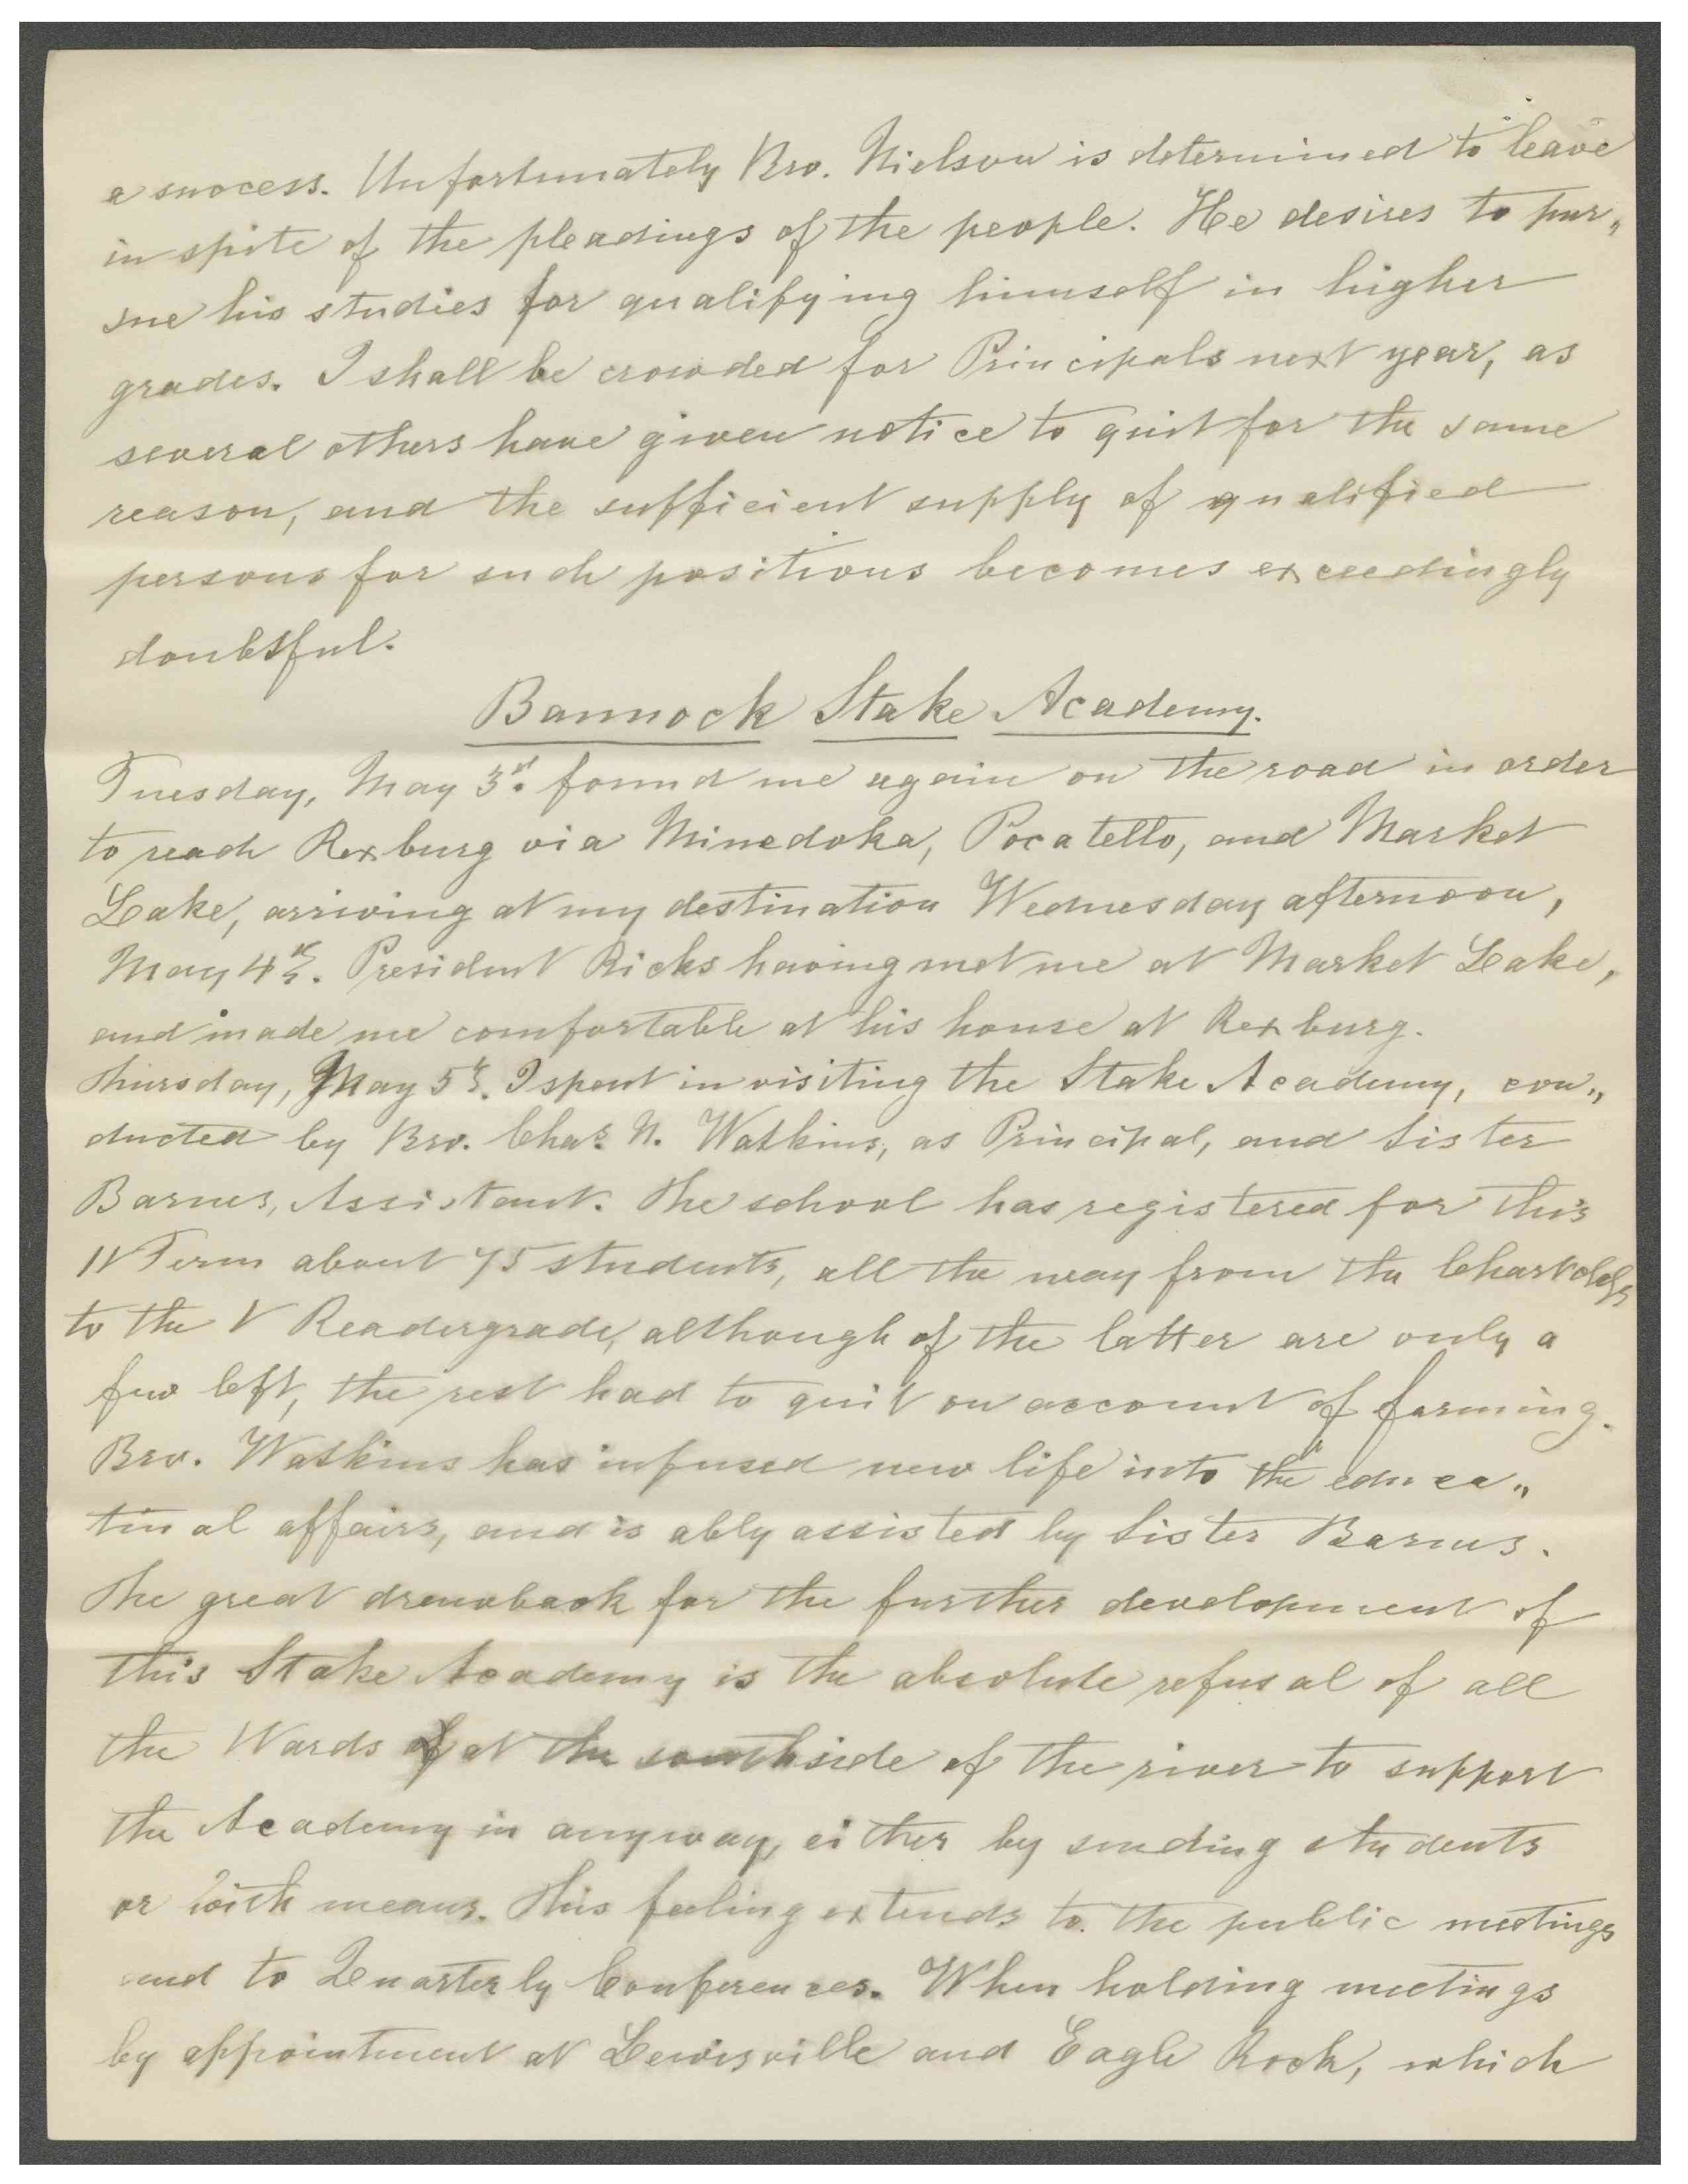 a success. Unfortunately Bro. Nielson is determined to leave
in spite of the pleadings of the people. He desires to pur„
sue his studies for qualifying himself in higher
grades. I shall be crowded for Principals next year, as
several others have given notice to quit for the same
reason, and the sufficient supply of qualified
persons for such positions becomes exceedingly
doubtful.
Bannock Stake Academy.
Tuesday, May 3d. found me again on the road in order
to reach Rexburg via Minedoka, Pocatello, and Market
Lake, arriving at my destination Wednesday afternoon,
May 4th. President Ricks having met me at Market Lake,
and made me comfortable at his house at Rexburg.
Thursday, May 5th. I spent in visiting the Stake Academy, con„
ducted by Bro. Chas. N. Watkins, as Principal, and Sister
Barnes, Assistant. The school has registered for this
IV Term about 75 students, all the way from the Chartclass
to the V Readergrade, although of the latter are only a
few left, the rest had to quit on account of farming.
Bro. Watkins has infused new life into the educa„
tinal affairs, and is ably assisted by Sister Barnes.
The great drawback for the further development of
this Stake Academy is the absolute refusal of all
the Wards at the southside of the river to support
the Academy in anyway, either by sending students
or with means. This feeling extends to the public meetings
and to Quarterly Conferences. When holding meetings
by appointment at Lewisville and Eagle Rock, which